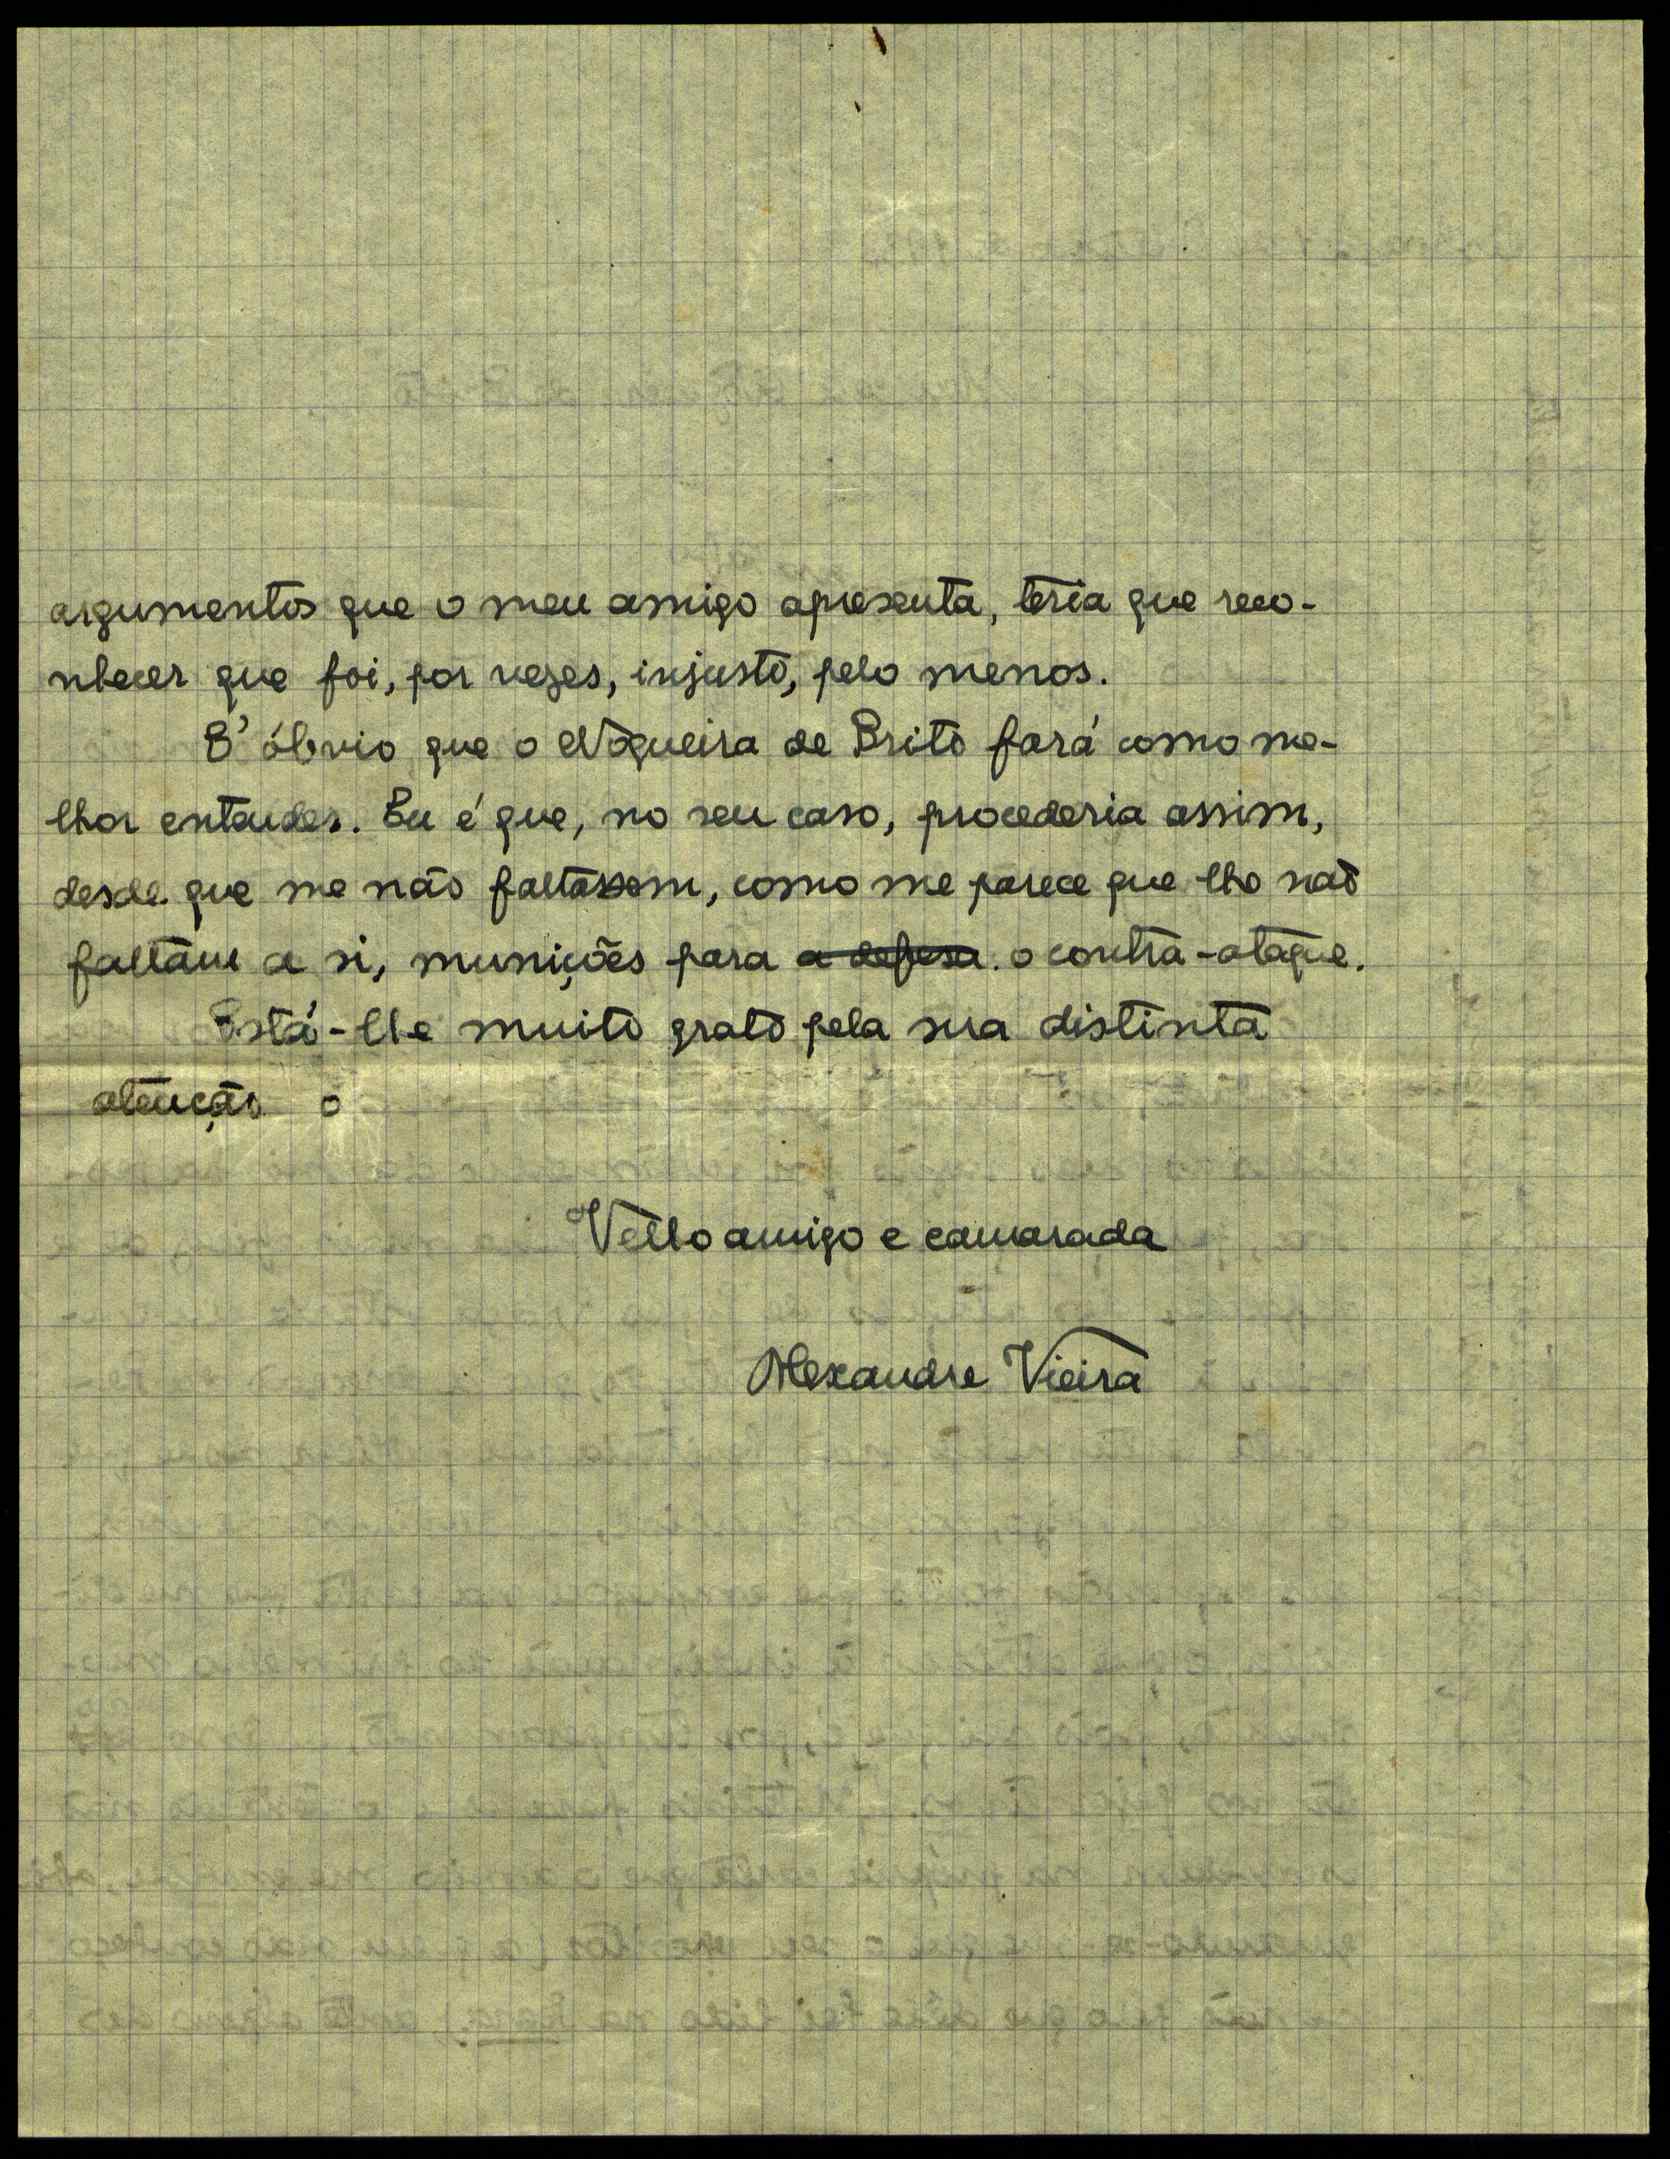 argumentos que o meu amigo apresenta, teria que reco-
nhecer que foi, por vezes, injusto, pelo menos.
E' óbvio que o Nogueira de Brito fará como me-
lhor entender. Eu é que, no seu caso, procederia assim,
desde que me não faltassem, como me parece que lhe não
faltam a si, munições para a defesa. o contra-ataque.
Está-lhe muito grato pela sua distinta
atenção o
Velho amigo e camarada
Alexandre Vieira